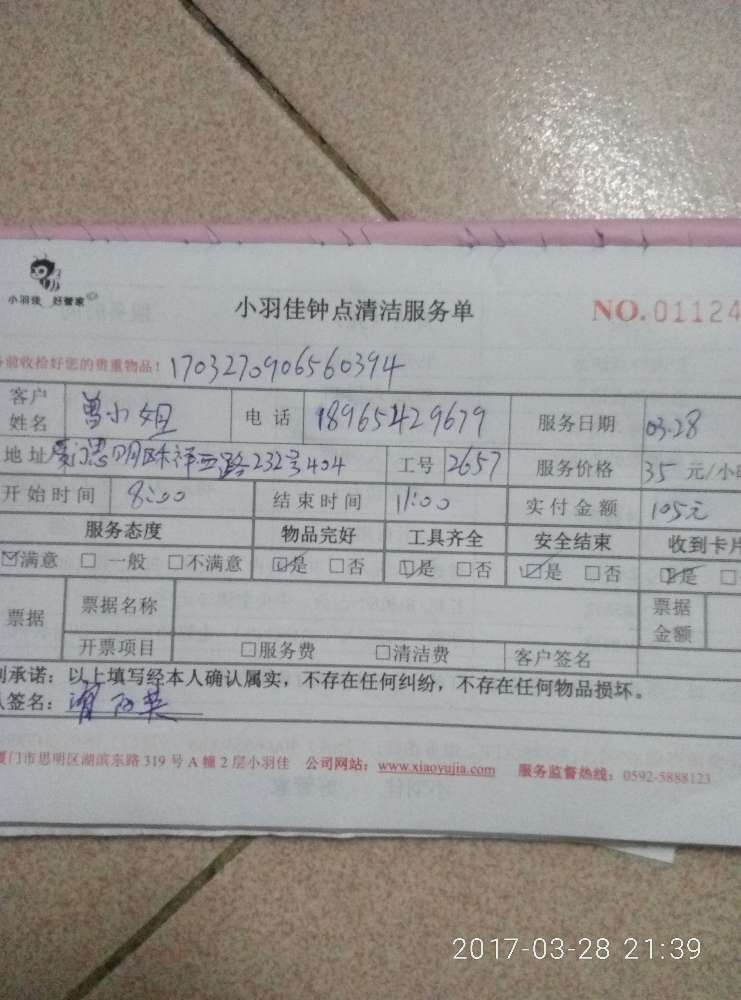 小羽佳 好管家
小羽佳钟点清洁服务单 NO.01124
前收捡好您的贵重物品! 1703270906560394
客户姓名 曾小姐 电话 18965429679 服务日期 03-28
地址 厦门思明区祥西路232号404 工号 2657 服务价格 35 元/小
开始时间 8:00 结束时间 11:00 实付金额 105元
服务态度 物品完好 工具齐全 安全结束 收到卡片
☑满意 □一般 □不满意 ☑是 □否 ☑是 □否 ☑是 □否 ☑是 □
票据 票据名称 票据金额
开票项目 □服务费 □清洁费 客户签名
承诺：以上填写经本人确认属实，不存在任何纠纷，不存在任何物品损坏。
签名：
厦门市思明区湖滨东路 319 号 A 幢 2 层小羽佳 公司网站：www.xiaoyujia.com 服务监督热线：0592-5888123
2017-03-28 21:39